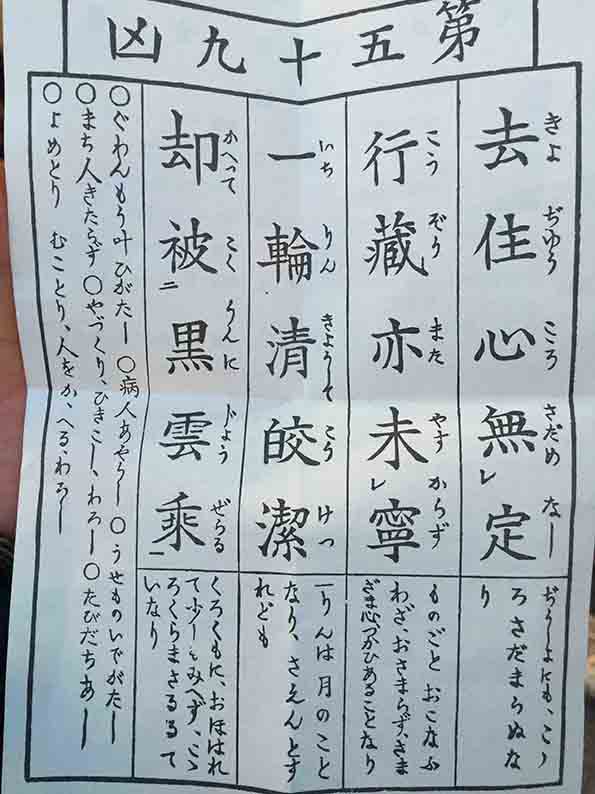 第五十九凶
去住心無レ定
きよ ぢゆう こころ さだめ なし
ぢうしよにも、こゝ
ろさだまらぬな
り
行藏亦未レ寧
こう ぞう また やす からず
ものごと おこなふ
わざ、おさまらず、さま
ざま心づかひあることなり
一輪清皎潔
いち りん きようして こう けつ
一りんは月のこと
なり、さえんとす
れども
却被二黒雲乘一
かへつて こく うんに じよう ぜらる
くろくもに、おほはれ
て少しもみへず、こゝ
ろくらまさるるて
いなり
○ぐわんもう叶 ひがたし ○病人あやうし ○うせものいでがたし
○まち人きたらず ○やづくり、ひきこし、わろし ○たびだちあしし
○よめとり むことり、人をかゝへる、わろし